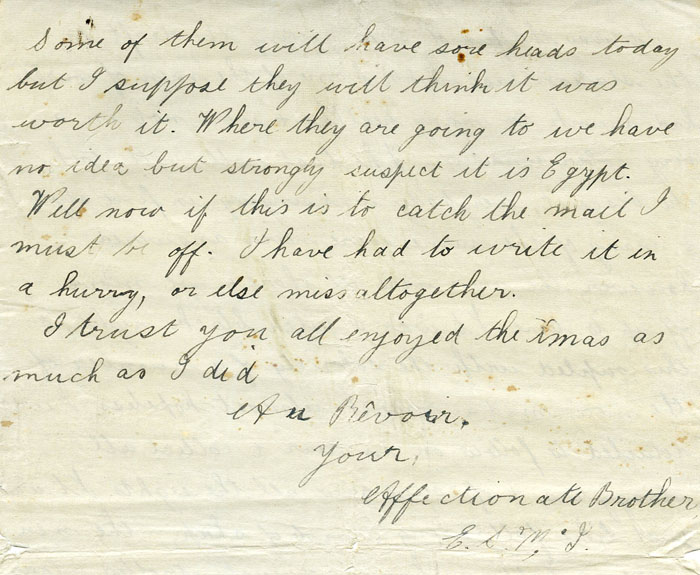 Some of them will have sore heads today
but I suppose they will think it was
worth it. Where they are going to we have
no idea but strongly suspect it is Egypt.
Well now if this is to catch the mail I
must be off. I have had to write it in
a hurry, or else miss altogether.
I trust you all enjoyed the Xmas as
much as I did
Au Rêvoir.
Your,
Affectionate Brother
E. S. McI.